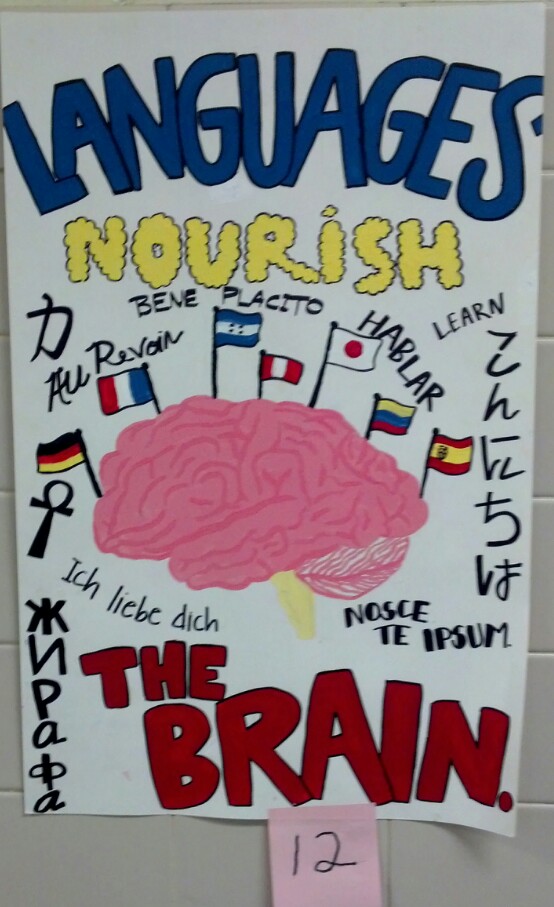 LANGUAGES
NOURISH
BENE PLACITO
力
Au Revoir
HABLAR
LEARN
こんにちは
Ich liebe dich
NOSCE
TE IPSUM
Жирафа
THE
BRAIN.
12